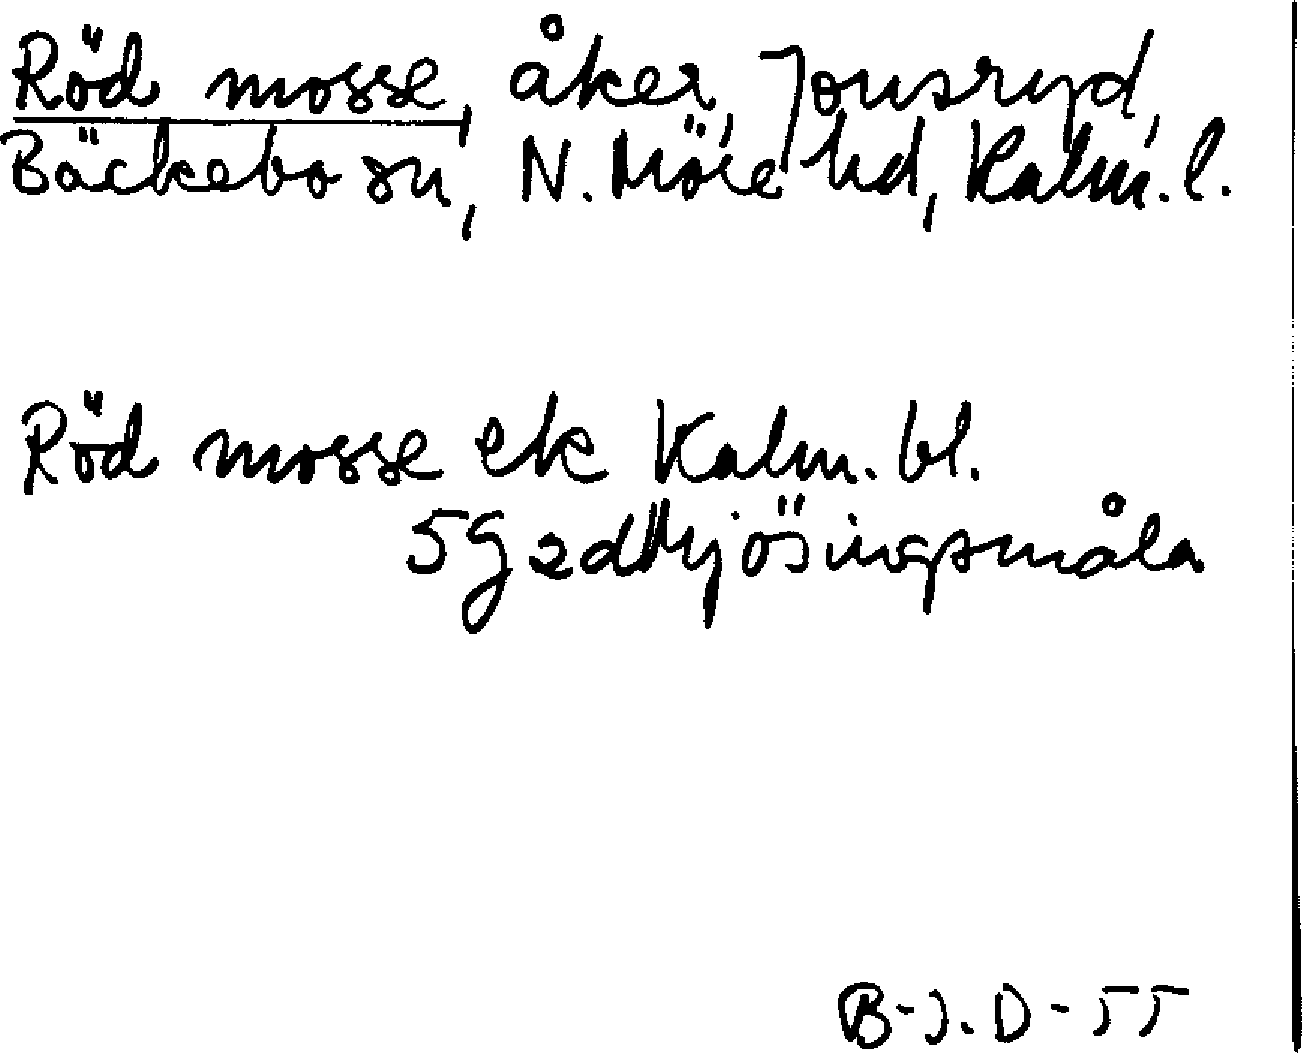 Röd mosse, åker, Jonsryd,
Bäckebo sn, N. Möre hd, Kalm. l.
Röd mosse ek Kalm. bl.
5G2d Mjösingsmåla
B-J. D-55